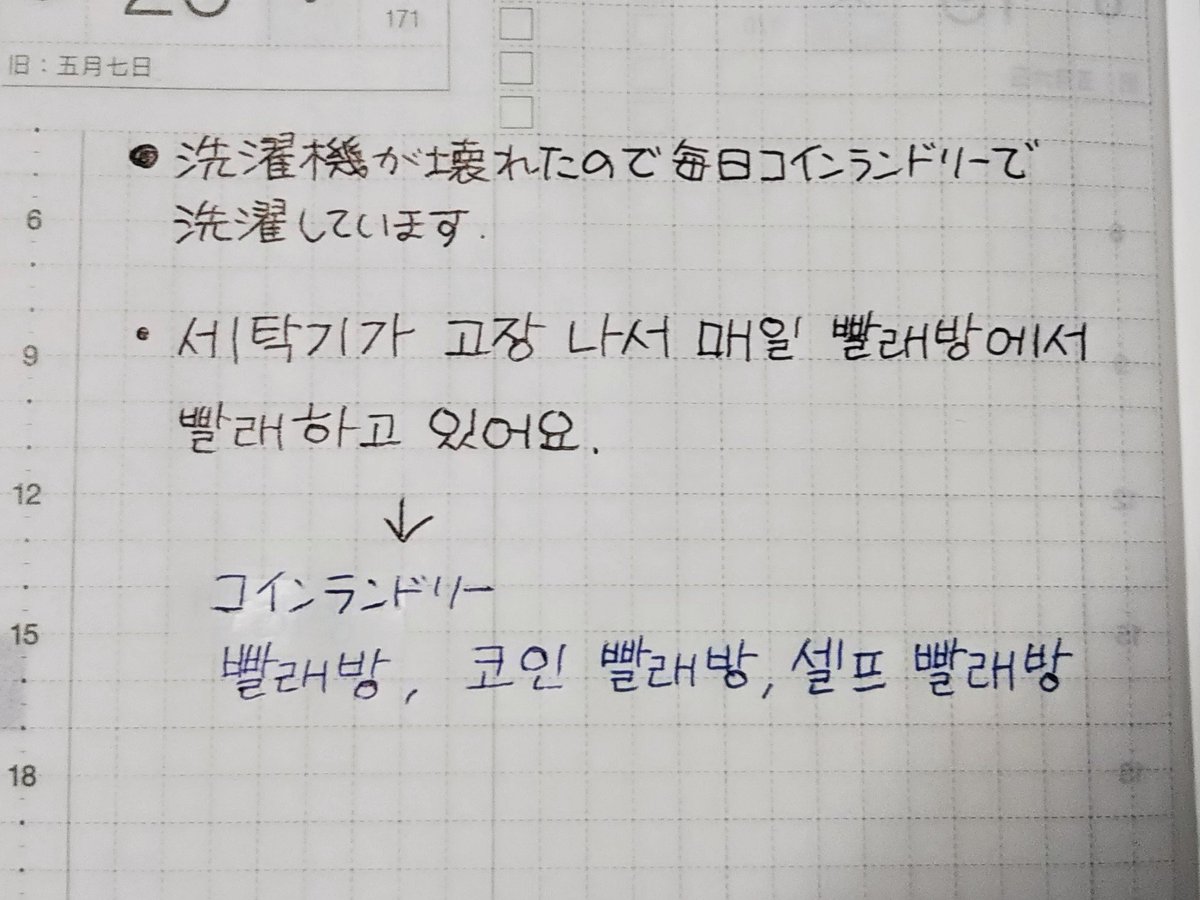 171
旧：五月七日
● 洗濯機が壊れたので毎日コインランドリーで
6
洗濯しています.
• 세탁기가 고장 나서 매일 빨래방에서
9
빨래하고 있어요.
12
↓
コインランドリー
15
빨래방, 코인 빨래방, 셀프 빨래방
18